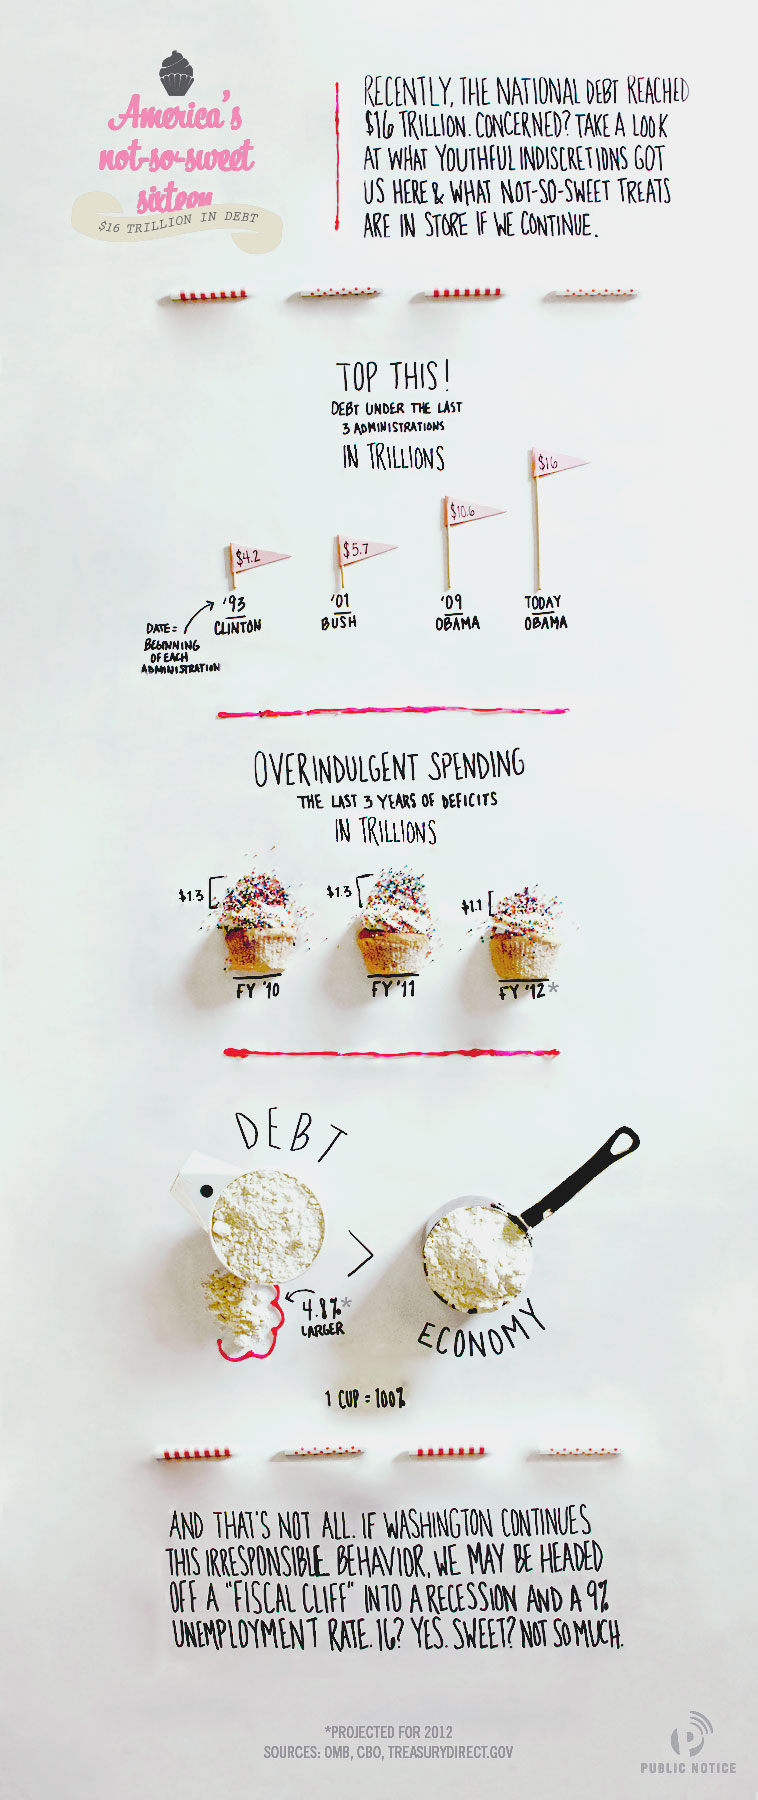 America's
not-so-sweet
sixteen
$16 TRILLION IN DEBT
RECENTLY, THE NATIONAL DEBT REACHED
$16 TRILLION. CONCERNED? TAKE A LOOK
AT WHAT YOUTHFUL INDISCRETIONS GOT
US HERE & WHAT NOT-SO-SWEET TREATS
ARE IN STORE IF WE CONTINUE.
TOP THIS!
DEBT UNDER THE LAST
3 ADMINISTRATIONS
IN TRILLIONS
$4.2
$5.7
$10.6
$16
'93
CLINTON
'01
BUSH
'09
OBAMA
TODAY
OBAMA
DATE =
BEGINNING
OF EACH
ADMINISTRATION
OVERINDULGENT SPENDING
THE LAST 3 YEARS OF DEFICITS
IN TRILLIONS
$1.3
$1.3
$1.1
FY '10
FY '11
FY '12*
DEBT
>
4.8%*
LARGER
ECONOMY
1 CUP = 100%
AND THAT'S NOT ALL. IF WASHINGTON CONTINUES
THIS IRRESPONSIBLE BEHAVIOR, WE MAY BE HEADED
OFF A "FISCAL CLIFF" INTO A RECESSION AND A 9%
UNEMPLOYMENT RATE. 16? YES. SWEET? NOT SO MUCH.
*PROJECTED FOR 2012
SOURCES: OMB, CBO, TREASURYDIRECT.GOV
PUBLIC NOTICE